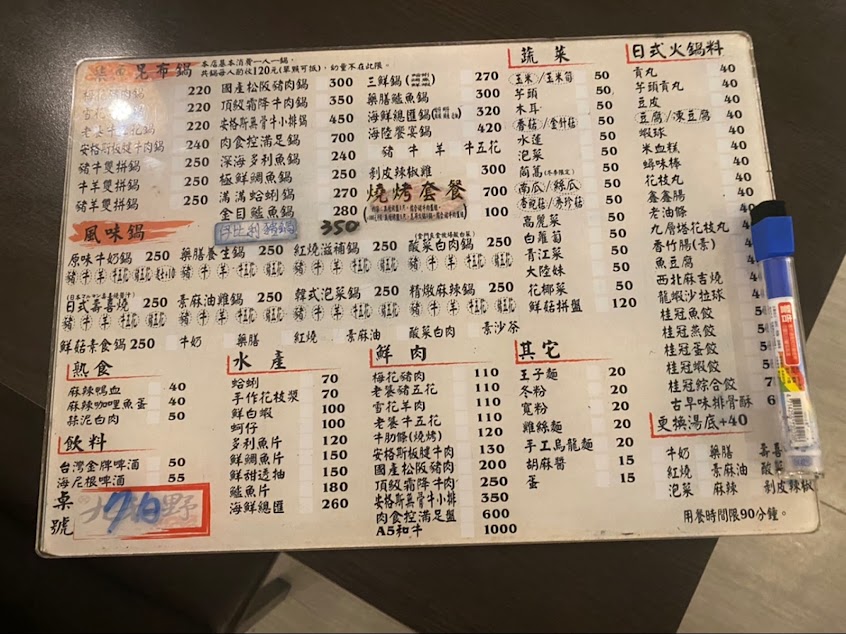 昆布鍋 本店基本消費一人一鍋。
共鍋每人酌收120元(單點可抵)，幼童不在此限。
220
220
220
安格斯板腱牛肉鍋 240
豬牛雙拼鍋 220
牛羊雙拼鍋 220
豬羊雙拼鍋 220
國產松阪豬肉鍋 300
頂級霜降牛肉鍋 350
安格斯無骨牛小排鍋 450
肉食控滿足鍋 700
深海多利魚鍋 240
極鮮鯛魚鍋 250
滿滿蛤蜊鍋 270
金目鱸魚鍋 280
伊比利豬鍋 350
三鮮鍋 270
藥膳鱸魚鍋 300
海鮮總匯鍋 320
海陸饗宴鍋 420
豬 牛 羊 牛五花
剝皮辣椒雞 300
燒烤套餐 700
100
風味鍋
原味牛奶鍋 250
豬 牛 羊
藥膳養生鍋 250
豬 牛 羊
紅燒滋補鍋 250
豬 牛 羊
酸菜白肉鍋 250
豬 牛 羊
日式壽喜燒 250
豬 牛 羊
素麻油雞鍋 250
豬 牛 羊
韓式泡菜鍋 250
豬 牛 羊
精燉麻辣鍋 250
豬 牛 羊
鮮菇素食鍋 250 牛奶 藥膳 紅燒 素麻油 酸菜白肉 素沙茶
熟食
麻辣鴨血 40
麻辣咖哩魚蛋 40
蒜泥白肉 50
飲料
台灣金牌啤酒 50
海尼根啤酒 55
桌號
水產
蛤蜊 70
手作花枝漿 70
鮮白蝦 100
蚵仔 100
多利魚片 120
鮮鯛魚片 150
鮮甜透抽 150
鱸魚片 180
海鮮總匯 260
鮮肉
梅花豬肉 110
老饕豬五花 110
雪花羊肉 110
老饕牛五花 110
牛肋條(燒烤) 120
安格斯板腱牛肉 130
國產松阪豬肉 200
頂級霜降牛肉 250
安格斯無骨牛小排 350
肉食控滿足盤 600
A5和牛 1000
其它
王子麵 20
冬粉 20
寬粉 20
雞絲麵 20
手工烏龍麵 20
胡麻醬 15
蛋 15
蔬菜
玉米/玉米筍 50
芋頭 50
木耳 50
香菇/金針菇 50
水蓮 50
泡菜 50
茼蒿(冬季限定) 50
南瓜/絲瓜 50
杏鮑菇/秀珍菇 50
高麗菜 50
白蘿蔔 50
青江菜 50
大陸妹 50
花椰菜 50
鮮菇拼盤 120
日式火鍋料
貢丸 40
芋頭貢丸 40
豆皮 40
豆腐/凍豆腐 40
蝦球 40
米血糕 40
蟳味棒 40
花枝丸 40
鑫鑫腸 40
老油條 40
九層塔花枝丸
香竹腸(素)
魚豆腐
西北麻吉燒
龍蝦沙拉球
桂冠魚餃
桂冠燕餃
桂冠蛋餃
桂冠蝦餃
桂冠綜合餃
古早味排骨酥
更換湯底+40
牛奶 藥膳 壽喜
紅燒 素麻油 酸菜
泡菜 麻辣 剝皮辣椒
用餐時間限90分鐘。